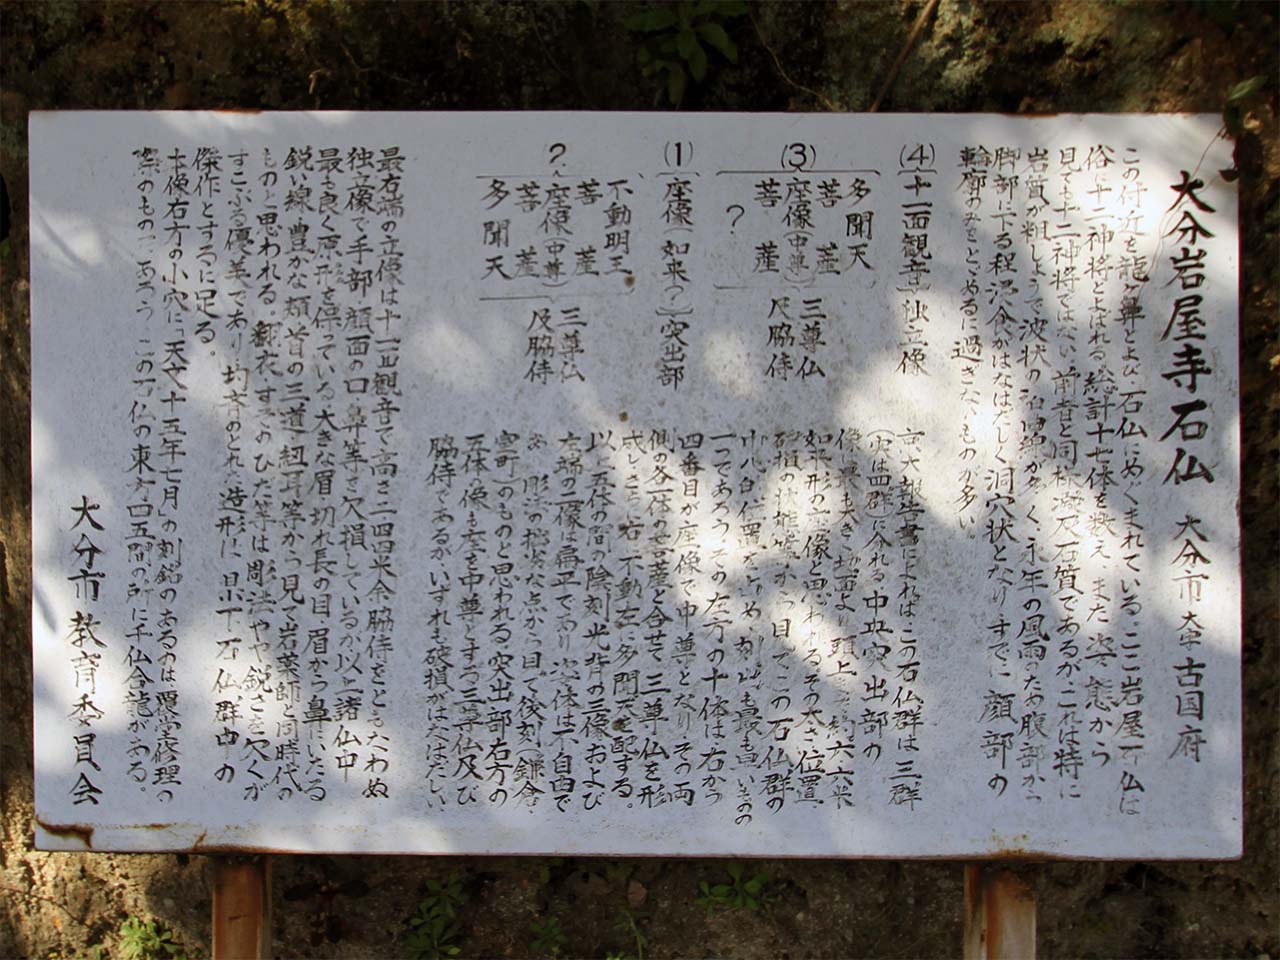 大分岩屋寺石仏 大分市大字古国府
この付近を龍ヶ鼻とよび石仏にめぐまれている。ここ岩屋石仏は
俗に十二神将とよばれる総計十七体を数えまた姿態から
見ても十二神将ではない前者と同様凝灰石質であるがこれは特に
岩質が粗しょうで波状の 多く永年の風雨のため腹部から
脚部に下る程浸食がはなはだしく洞穴状となりすでに顔部の
輪廓のみをとどめるに過ぎないものが多い。
(4) 十一面観音 独立像
(3) 多聞天
菩薩
座像(中尊)
菩薩
?
三尊仏
及脇侍
(1) 座像(如来?)突出部
? 不動明王
菩薩
座像(中尊)
菩薩
多聞天
三尊仏
及脇侍
京大報告書によればこの石仏群は三群
(実は四群)に分れる中央突出部の
像 最も大きく場面より頭上まで約六六米
如来形の座像と思われるその大さ位置
破損の状態等から目てこの石仏群の
中心的位置を占め も最も古いものの
一つであろうその左方の十体は右から
四番目が座像で中尊となりその両
側の各一体の菩薩と合せて三尊仏を形
成しさらに右に不動左に多聞天を配する。
以上五体の間の陰刻光背の三像および
左端の二像は扁平であり 体は不自由で
あり彫法の拙劣な点から目て後刻(鎌倉
室町)のものと思われる突出部右方の
五体の像も座を中尊とする三尊仏及び
脇侍であるがいずれも破損がはなはだしい
最右端の立像は十一面観音で高さ二四四米余脇侍をともなわぬ
独立像で手部顔面の口鼻等を欠損しているが以上諸仏中
最も良く原形を保っている大きな眉切れ長の目眉から鼻にいたる
鋭い線豊かな頬首の三道紐耳等から見て岩薬師と同時代の
ものと思われる。翻衣すそのひだ等は彫法やや鋭さを欠くが
すこぶる優美であり均斉のとれた造形は県下石仏群中の
傑作とするに足る。
十像右方の小穴に「天文十五年七月」の刻銘のあるのは覆堂修理の
際のものであろう この石仏の東方四五間の所に千仏合龍がある。
大分市教育委員会